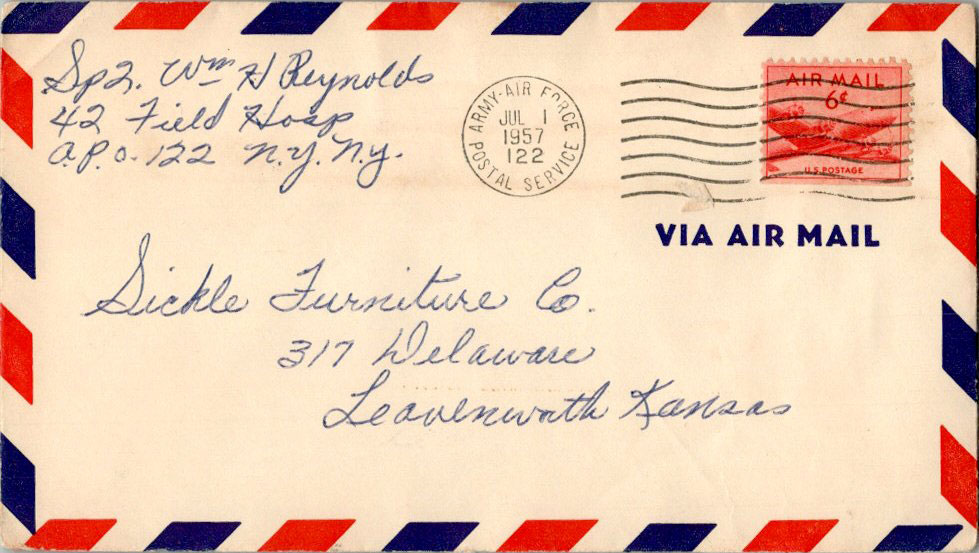 Sp2. Wm H Reynolds
42 Field Hosp
A.P.O. 122 N.Y. N.Y.
ARMY-AIR FORCE
JUL 1
1957
122
POSTAL SERVICE
AIR MAIL
6¢
U.S. POSTAGE
VIA AIR MAIL
Sickle Furniture Co.
317 Delaware
Leavenworth Kansas